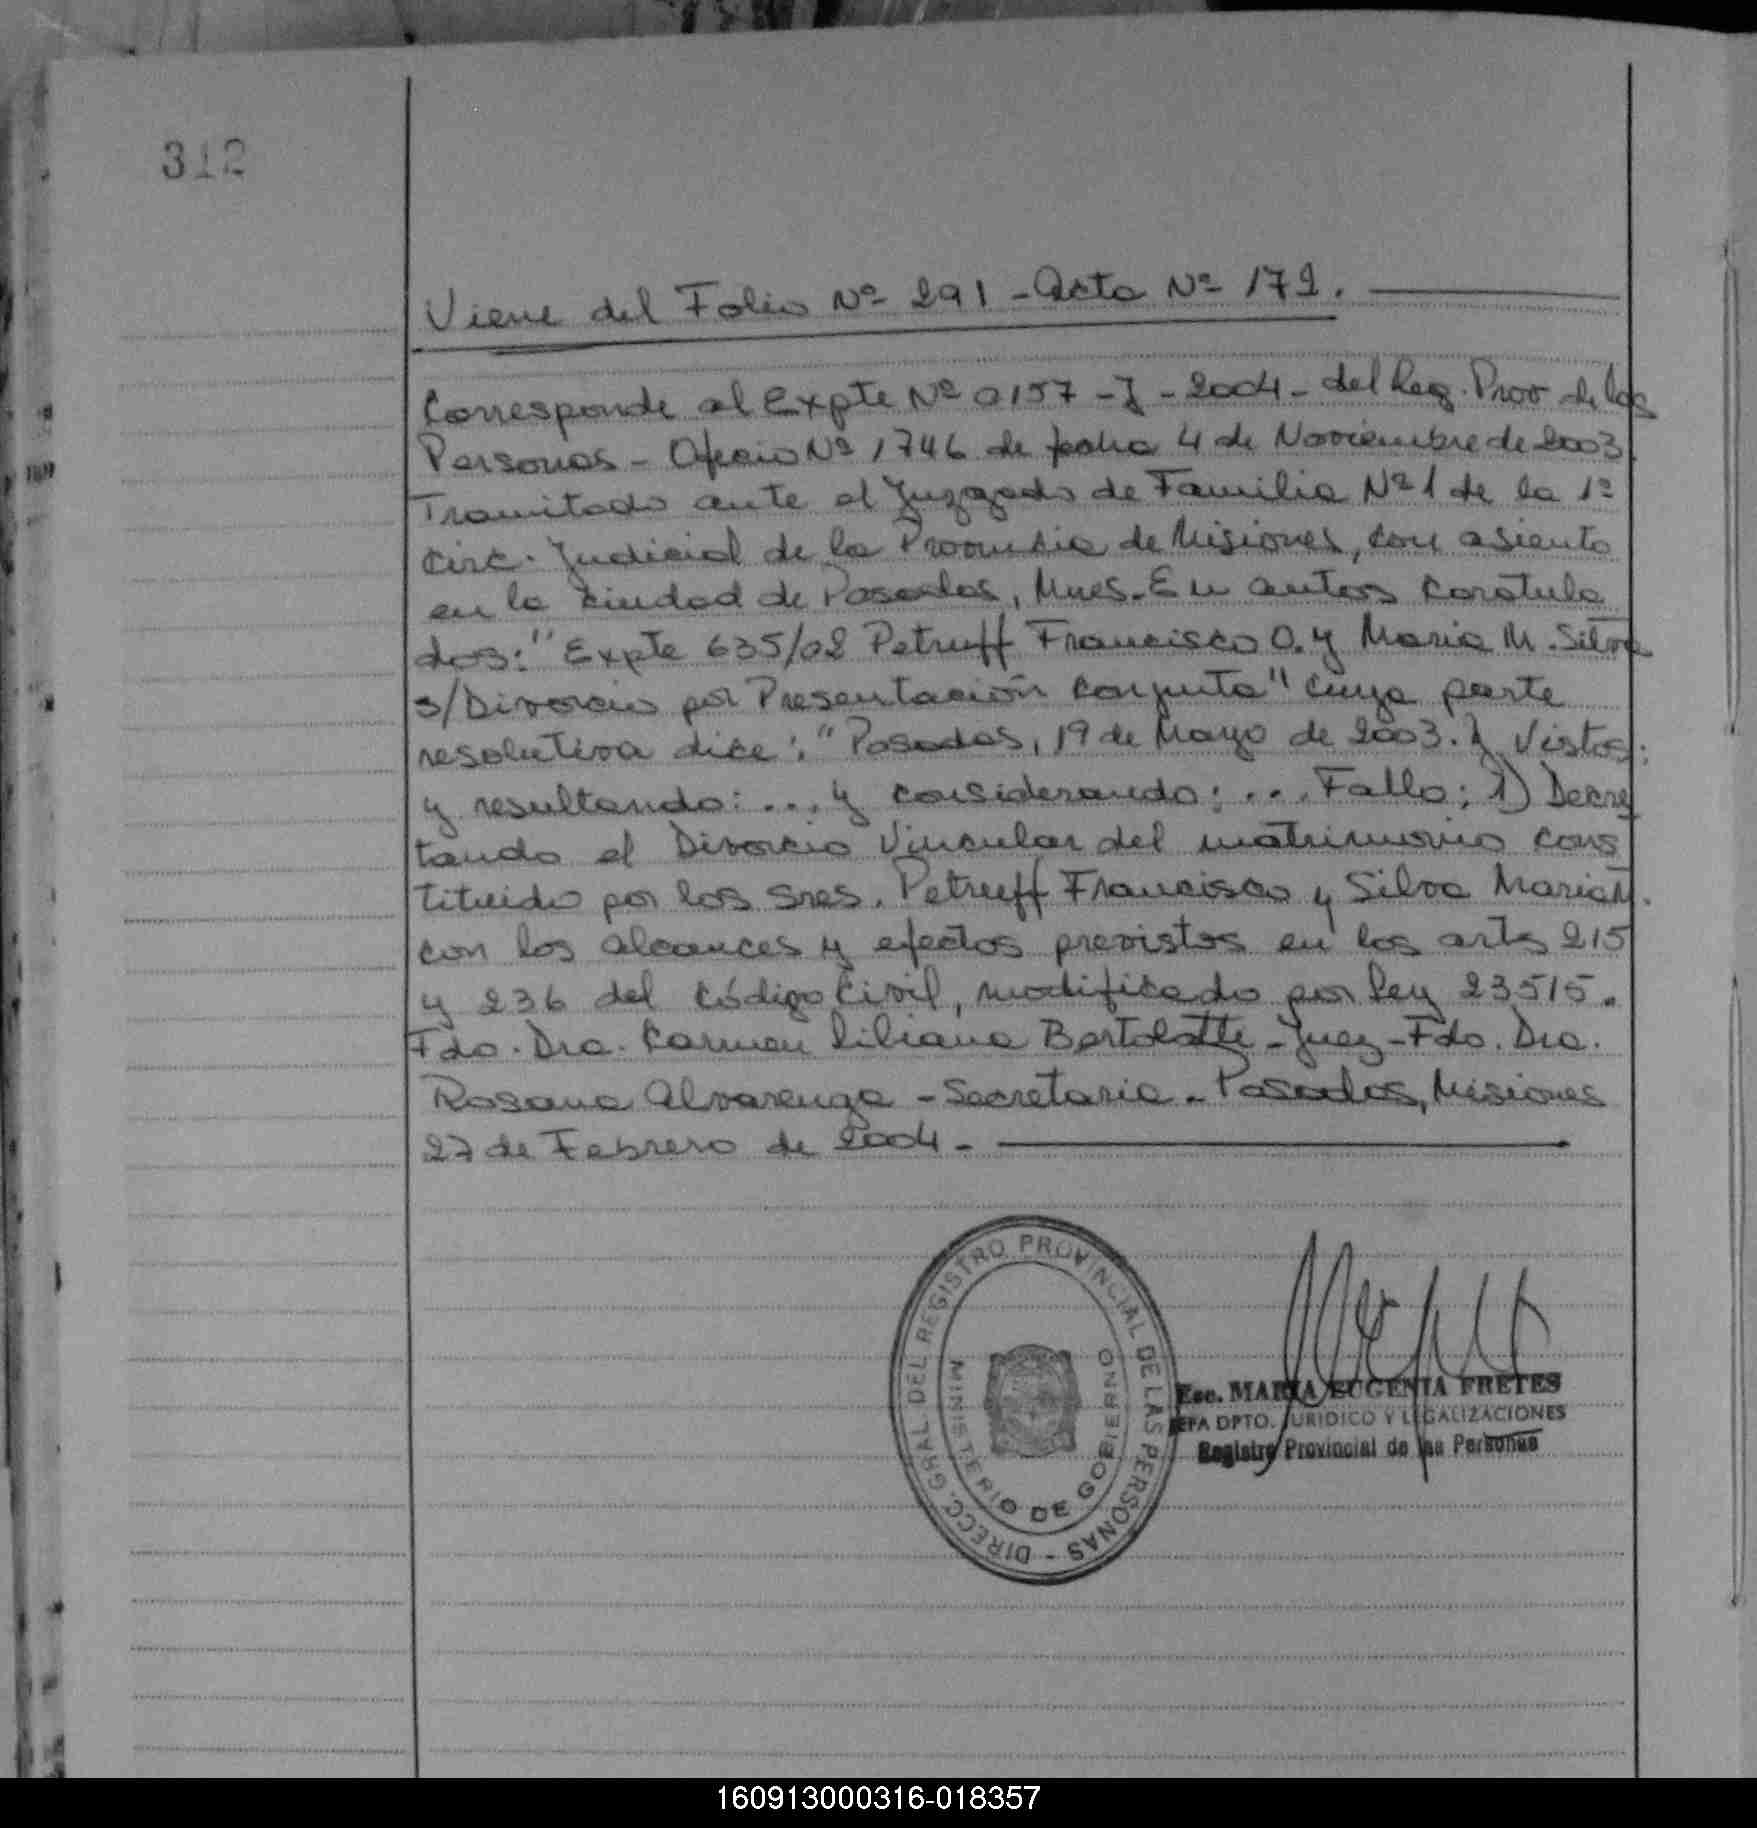 312
Viene del Folio Nº 291 - Acta Nº 172.
Corresponde al Expte Nº 0157 - J - 2004 - del Reg. Prov de las
Personas - Oficio Nº 1746 de fecha 4 de Noviembre de 2003.
Tramitado ante el Juzgado de Familia Nº 1 de la 1º
Circ. Judicial de la Provincia de Misiones, con asiento
en la ciudad de Posadas, Mnes. En autos caratula
dos: "Expte 635/02 Petruff Francisco O. y Maria M. Silva
s/Divorcio por Presentación Conjunta" cuya parte
resolutiva dice: "Posadas, 19 de Mayo de 2003. Y Vistos:
y resultando: ... y considerando: ... Fallo: 1) Decre
tando el Divorcio Vincular del matrimonio cons
tituido por los sres. Petruff Francisco y Silva Maria M.
con los alcances y efectos previstos en los arts 215
y 236 del Código Civil, modificado por ley 23515.
Fdo. Dra. Carmen Liliana Bertolotti - Juez - Fdo. Dra.
Rosana Alvarenga - Secretaria. Posadas, Misiones
27 de Febrero de 2004 -
DIRECC. GRAL. DEL REGISTRO PROVINCIAL DE LAS PERSONAS -
MINISTERIO DE GOBIERNO
Esc. MARIA EUGENIA FRETES
JEFA DPTO. JURIDICO Y LEGALIZACIONES
Registro Provincial de las Personas
160913000316-018357